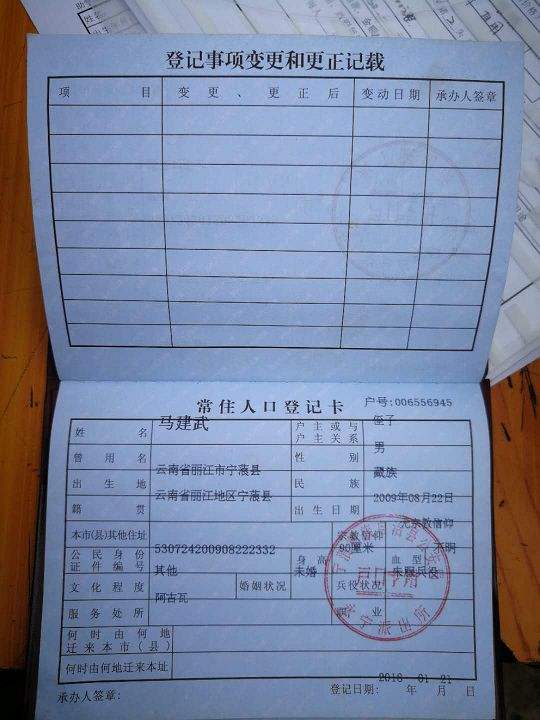 登记事项变更和更正记载
项 目 变 更 、 更 正 后 变动日期 承办人签章
常住人口登记卡 户号:006556945
姓 名 马建武 户主或与户主关系 侄子
曾用名 性 别 男
出生地 云南省丽江市宁蒗县 民 族 藏族
籍 贯 云南省丽江地区宁蒗县 出生日期 2009年08月22日
本市(县)其他住址 宗教信仰 无宗教信仰
公民身份证件编号 530724200908222332 身 高 90厘米 血 型 不明
文化程度 其他 婚姻状况 未婚 兵役状况 未服兵役
服务处所 阿古瓦 职 业
何时由何地迁来本市(县)
何时由何地迁来本址
承办人签章: 登记日期: 年 月 日
01 21
户口专用
派出所